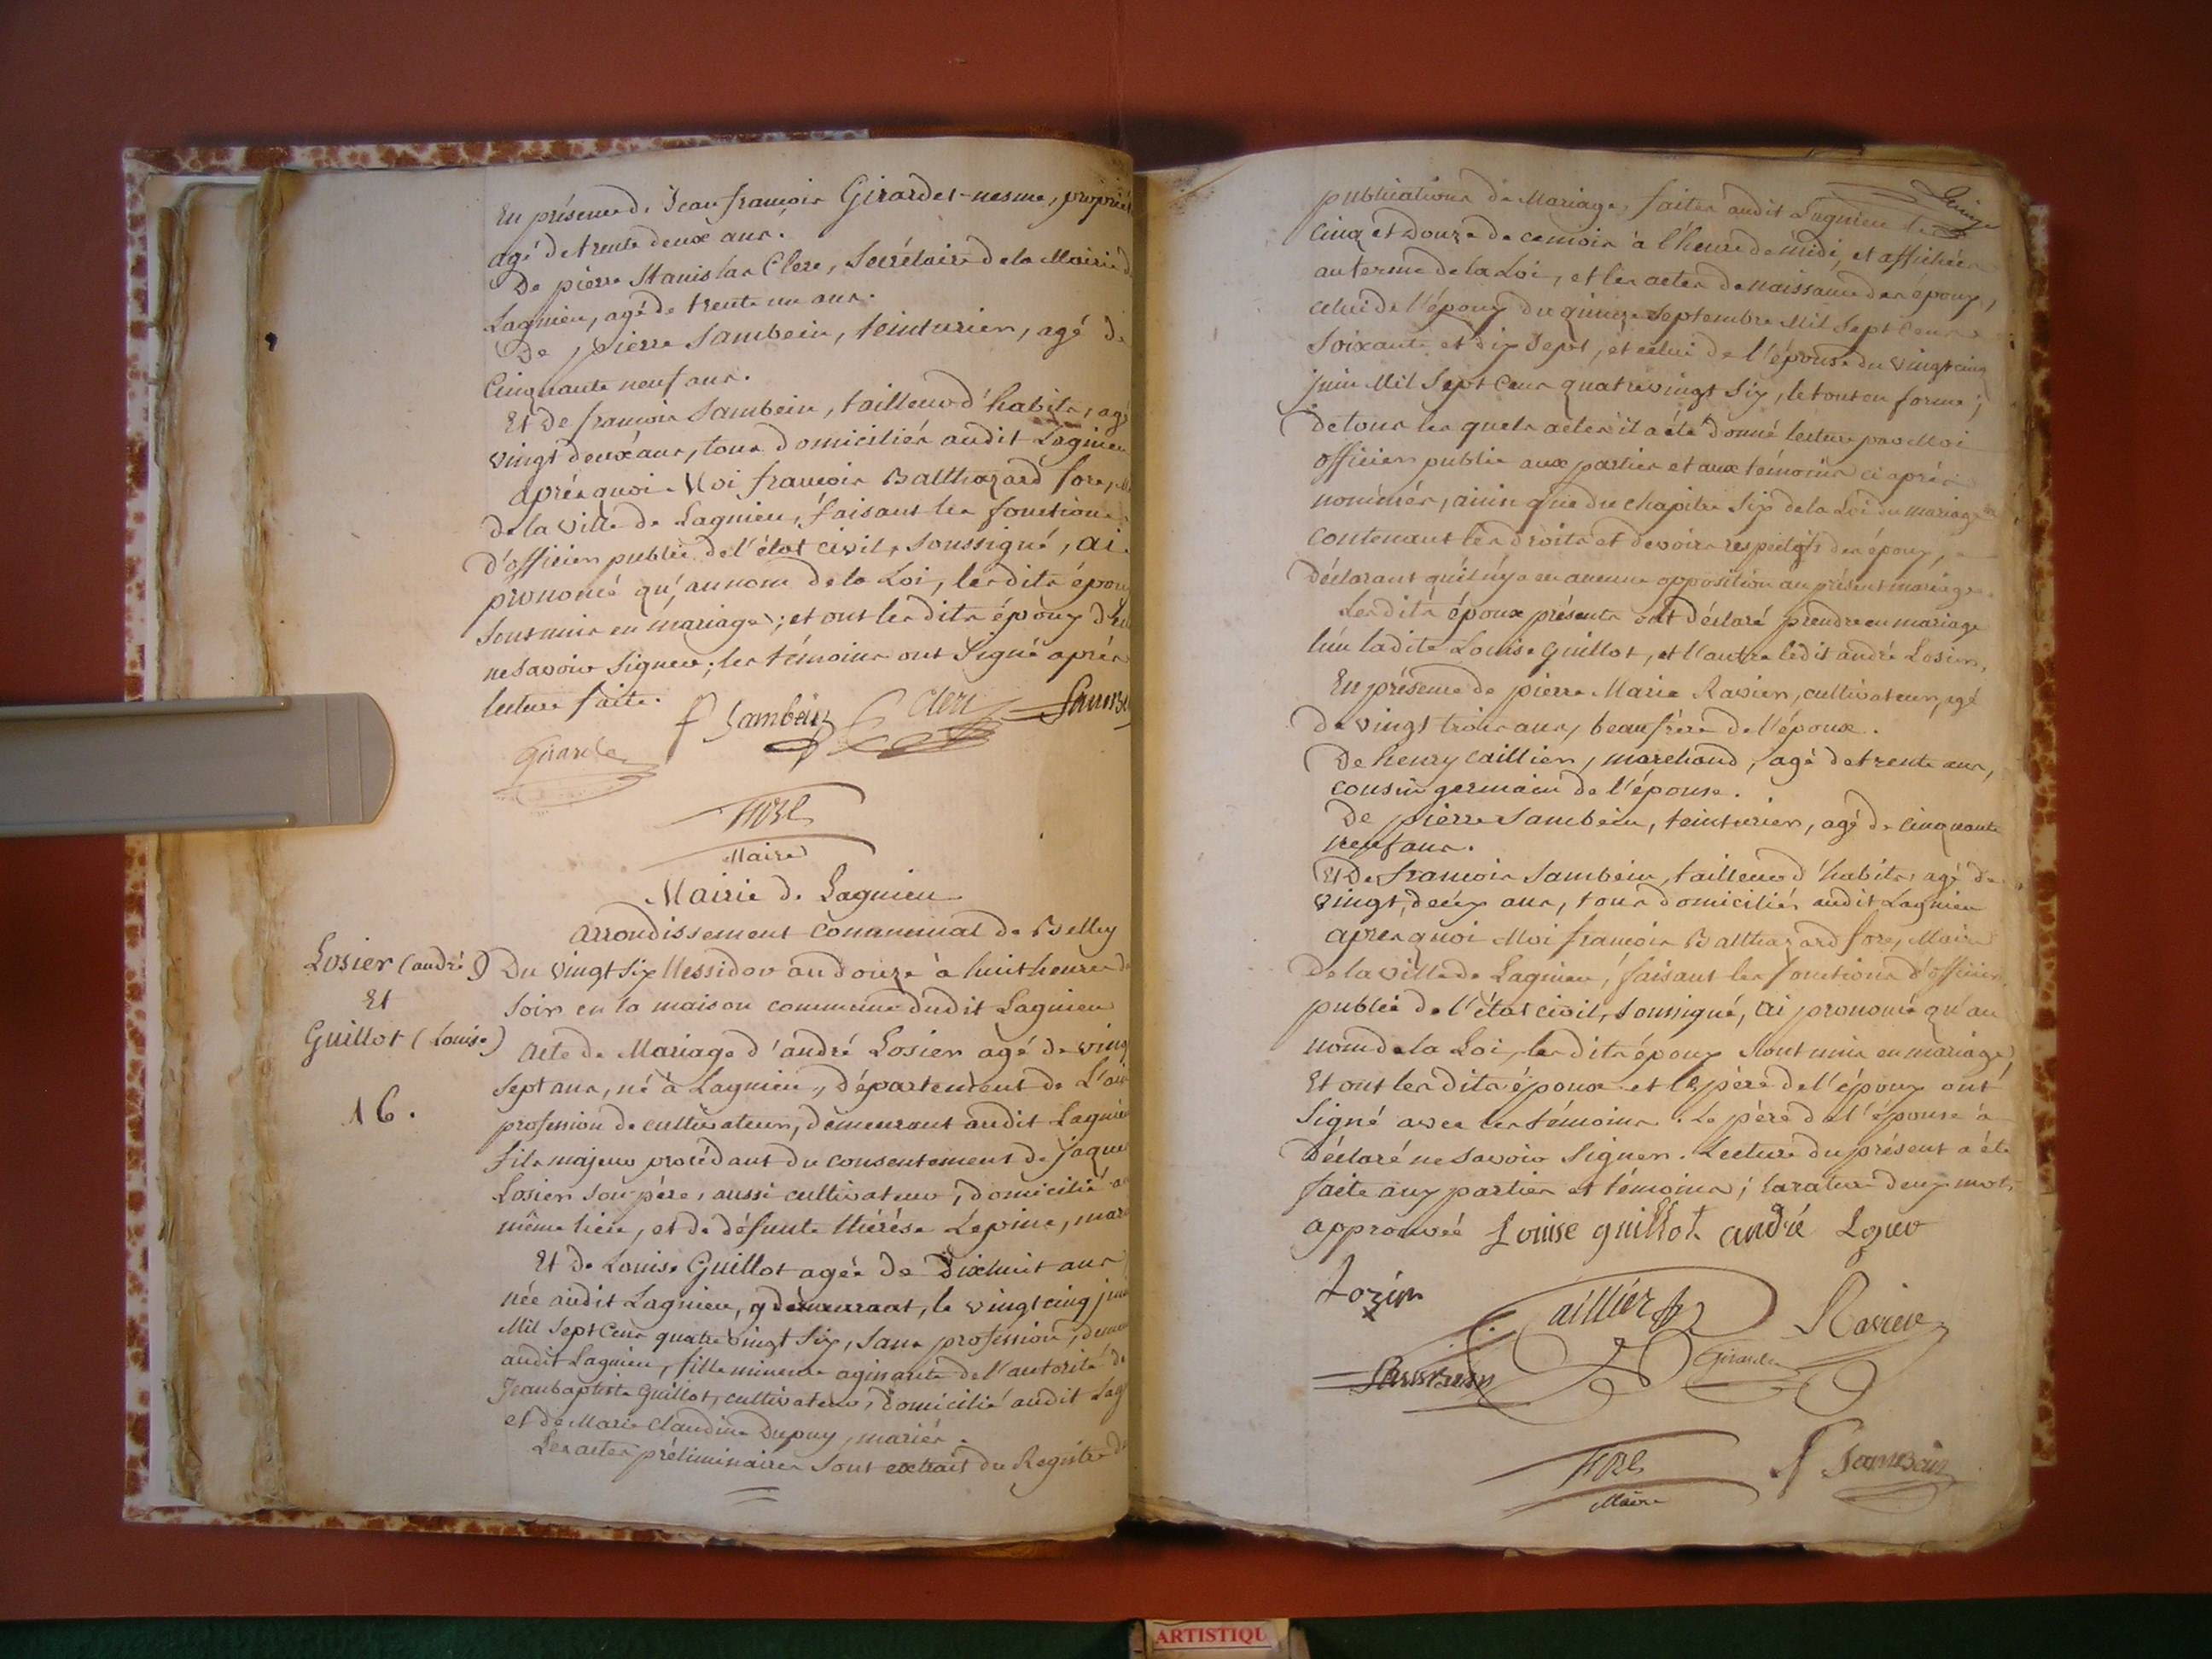 En présence de Jean françois Girardet-nesme, propriét
agé de trente deux ans.
De pierre Stanislas Clerc, Secrétaire de la Mairie d
Lagnieu, agé de trente un ans.
De pierre Sambein, teinturier, agé de
Cinquante neuf ans.
Et De françois Sambein, tailleur d'habits, agé
vingt deux ans, tous domiciliés audit Lagnieu
après quoi Moi françois Balthazard fore,
de la ville de Lagnieu, faisant les fonctions
d'officier public de l'état civil, soussigné, ai
prononcé qu'au nom de la Loi, lesdits épou
sont unis en mariage; et ont lesdits époux d
ne savoir signer; les témoins ont Signé après
lecture faite.
f Sambein Clerc Samb
Girarde
FORE
Maire
Mairie de Lagnieu
Arrondissement Communal de Belley
Losier (andré)
Et
Guillot (Louise)
16.
Du vingt Six Messidor an douze à huit heures d
soir en la maison commune dudit Lagnieu
Acte de Mariage d'andré Losier agé de ving
sept ans, né à Lagnieu, département de L'ain
profession de cultivateur, demeurant audit Lagnieu
fils majeur procédant du consentement de jaque
Losier son père, aussi cultivateur, domicilié a
même lieu, et de défunte thérèse Lepine, mar
Et de Louise Guillot agée de Dixhuit ans
née audit Lagnieu, y demeurant, le vingt cinq juin
Mil Sept Cens quatrevingt Six, sans profession, demeu
audit Lagnieu, fille mineure agissante de l'autorité de
Jean baptiste Guillot, cultivateur, domicilié audit Lag
et de Marie Claudine Dupuy, mariés.
Les actes préliminaires sont extrait du Registre d
publications de Mariage, faites audit Lagnieu les
cinq et Douze de ce mois à l'heure de midi, et affichées
au terme de la Loi, et les actes de naissance des époux,
celui de l'époux du quinze Septembre Mil Sept Cens
Soixante et dix Sept, et celui de l'épouse du vingt cinq
juin Mil Sept Cens quatrevingt Six, le tout en forme;
de tous les quels actes il a été donné lecture par Moi
officier public aux parties et aux témoins ci après
nommés, ainsi que du chapitre Six de la Loi du mariage
contenant les droits et devoirs respectifs des époux,
déclarant qu'il n'y a eu aucune opposition au présent mariage.
Lesdits époux présents ont déclaré prendre en mariage
l'un ladite Louise Guillot, et l'autre ledit andré Losier,
En présence de pierre Marie Ravier, cultivateur, agé
de vingt trois ans, beau frère de l'époux.
De henry Caillier, marchand, agé de trente ans,
cousin germain de l'épouse.
De pierre Sambein, teinturier, agé de cinquante
neuf ans.
Et De françois Sambein, tailleur d'habits, agé de
vingt deux ans, tous domiciliés audit Lagnieu
apres quoi Moi françois Balthazard fore, Maire
de la ville de Lagnieu, faisant les fonctions d'officier
public de l'état civil, soussigné, ai prononcé qu'au
nom de la Loi, lesdits époux sont unis en mariage,
Et ont lesdits époux et le père de l'époux ont
Signé avec les témoins. Le père de l'épouse a
Déclaré ne savoir Signer. Lecture du présent a été
faite aux parties et témoins; la rature deux mots
approuvée Louise guillot andré Lozier
Lozier
Caillier Ravier
Sambein Girarde
FORE
Maire
f Sambein
ARTISTIQU